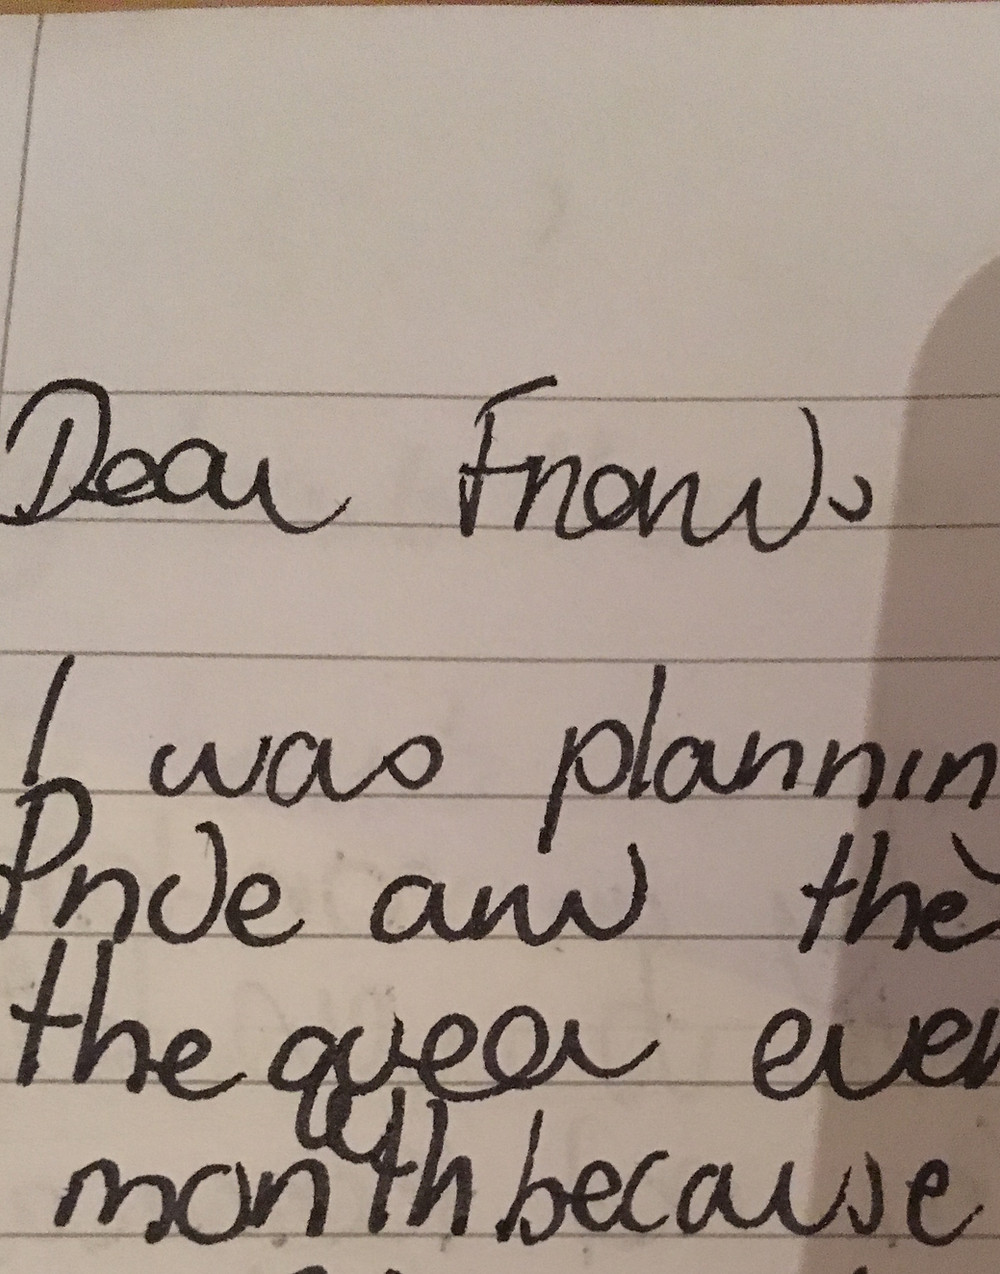 Dear Friends
I was plannin
Pride and the
the queer even
month because